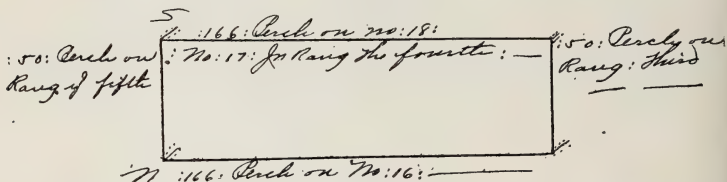 S
:166: Perch on no:18:
:50: Perch on
Rang ye fifth
: No:17: In Rang the fourth: —
:50: Perch on
Rang: Third
N :166: Perch on No:16: —